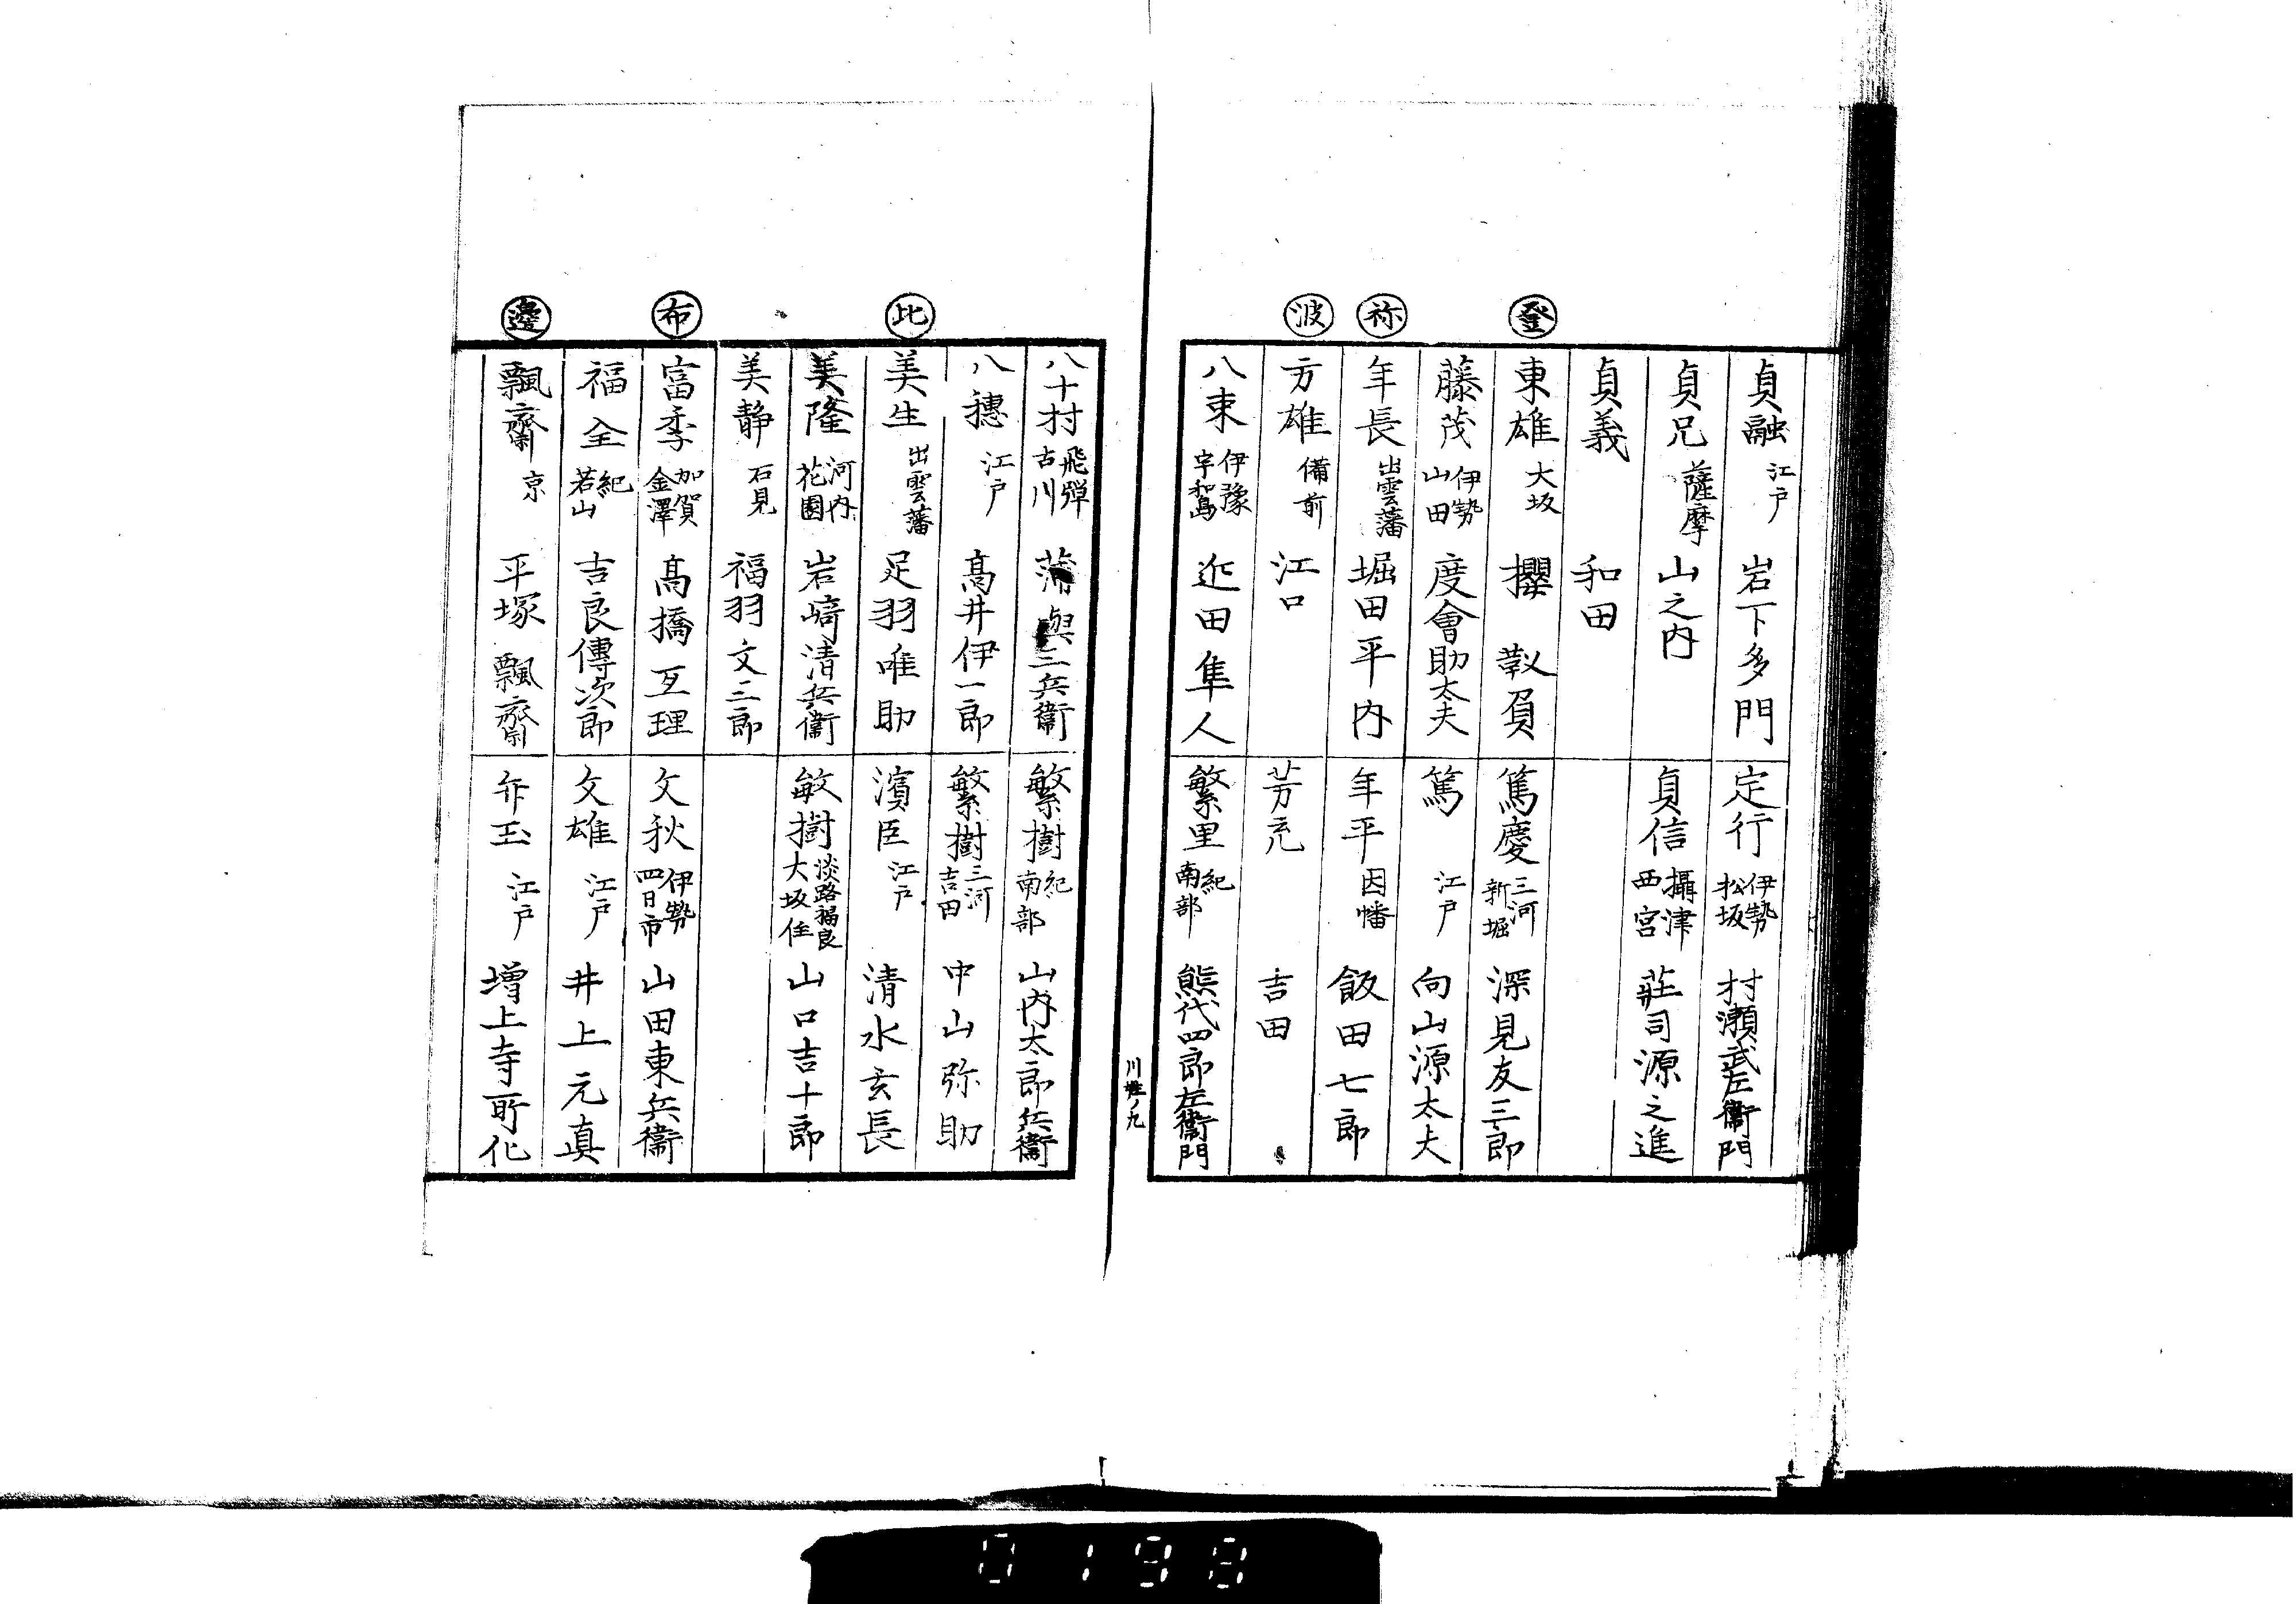 貞融 江戸 岩下多門
定行 伊勢松坂 村瀬武左衞門
貞兄 薩摩 山之内
貞信 攝津西宮 莊司源之進
貞義 和田
登
東雄 大坂 櫻 靱負
篤慶 三河新堀 深見友三郎
藤茂 伊勢山田 度會助太夫
篤 江戸 向山源太夫
祢
年長 出雲藩 堀田平内
年平 因幡 飯田七郎
波
方雄 備前 江口
芳充 吉田
八束 伊豫宇和嶌 近田隼人
繁里 紀南部 熊代四郎左衞門
八十村 飛彈古川 蒲與三兵衞
繁樹 紀南部 山内太郎兵衞
八穗 江戸 髙井伊一郎
繁樹 三河吉田 中山弥助
比
美生 出雲藩 足羽唯助
濱臣 江戸 清水玄長
美隆 河内花園 岩﨑清兵衞
敏樹 淡路福良大坂住 山口吉十郎
美静 石見 福羽文三郎
布
富季 加賀金澤 髙橋亙理
文秋 伊勢四日市 山田東兵衞
福全 紀若山 吉良傳次郎
文雄 江戸 井上元真
邊
飄齋 京 平塚飄齋
弁玉 江戸 増上寺所化
0198